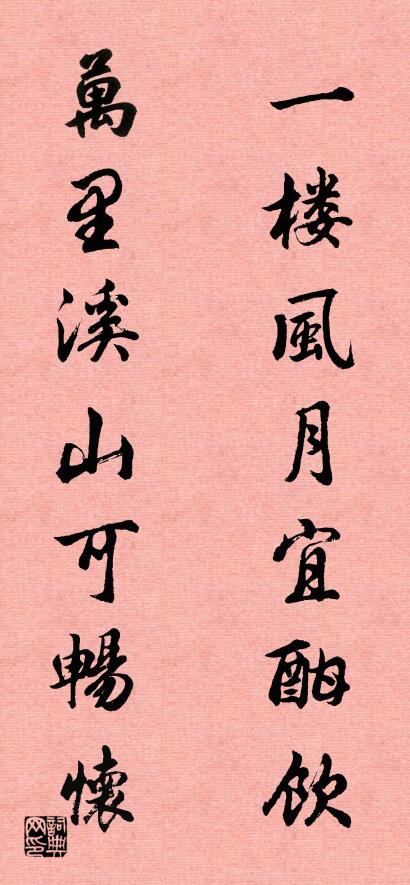 一楼風月宜酣飲
萬里溪山可暢懷
詞典網印